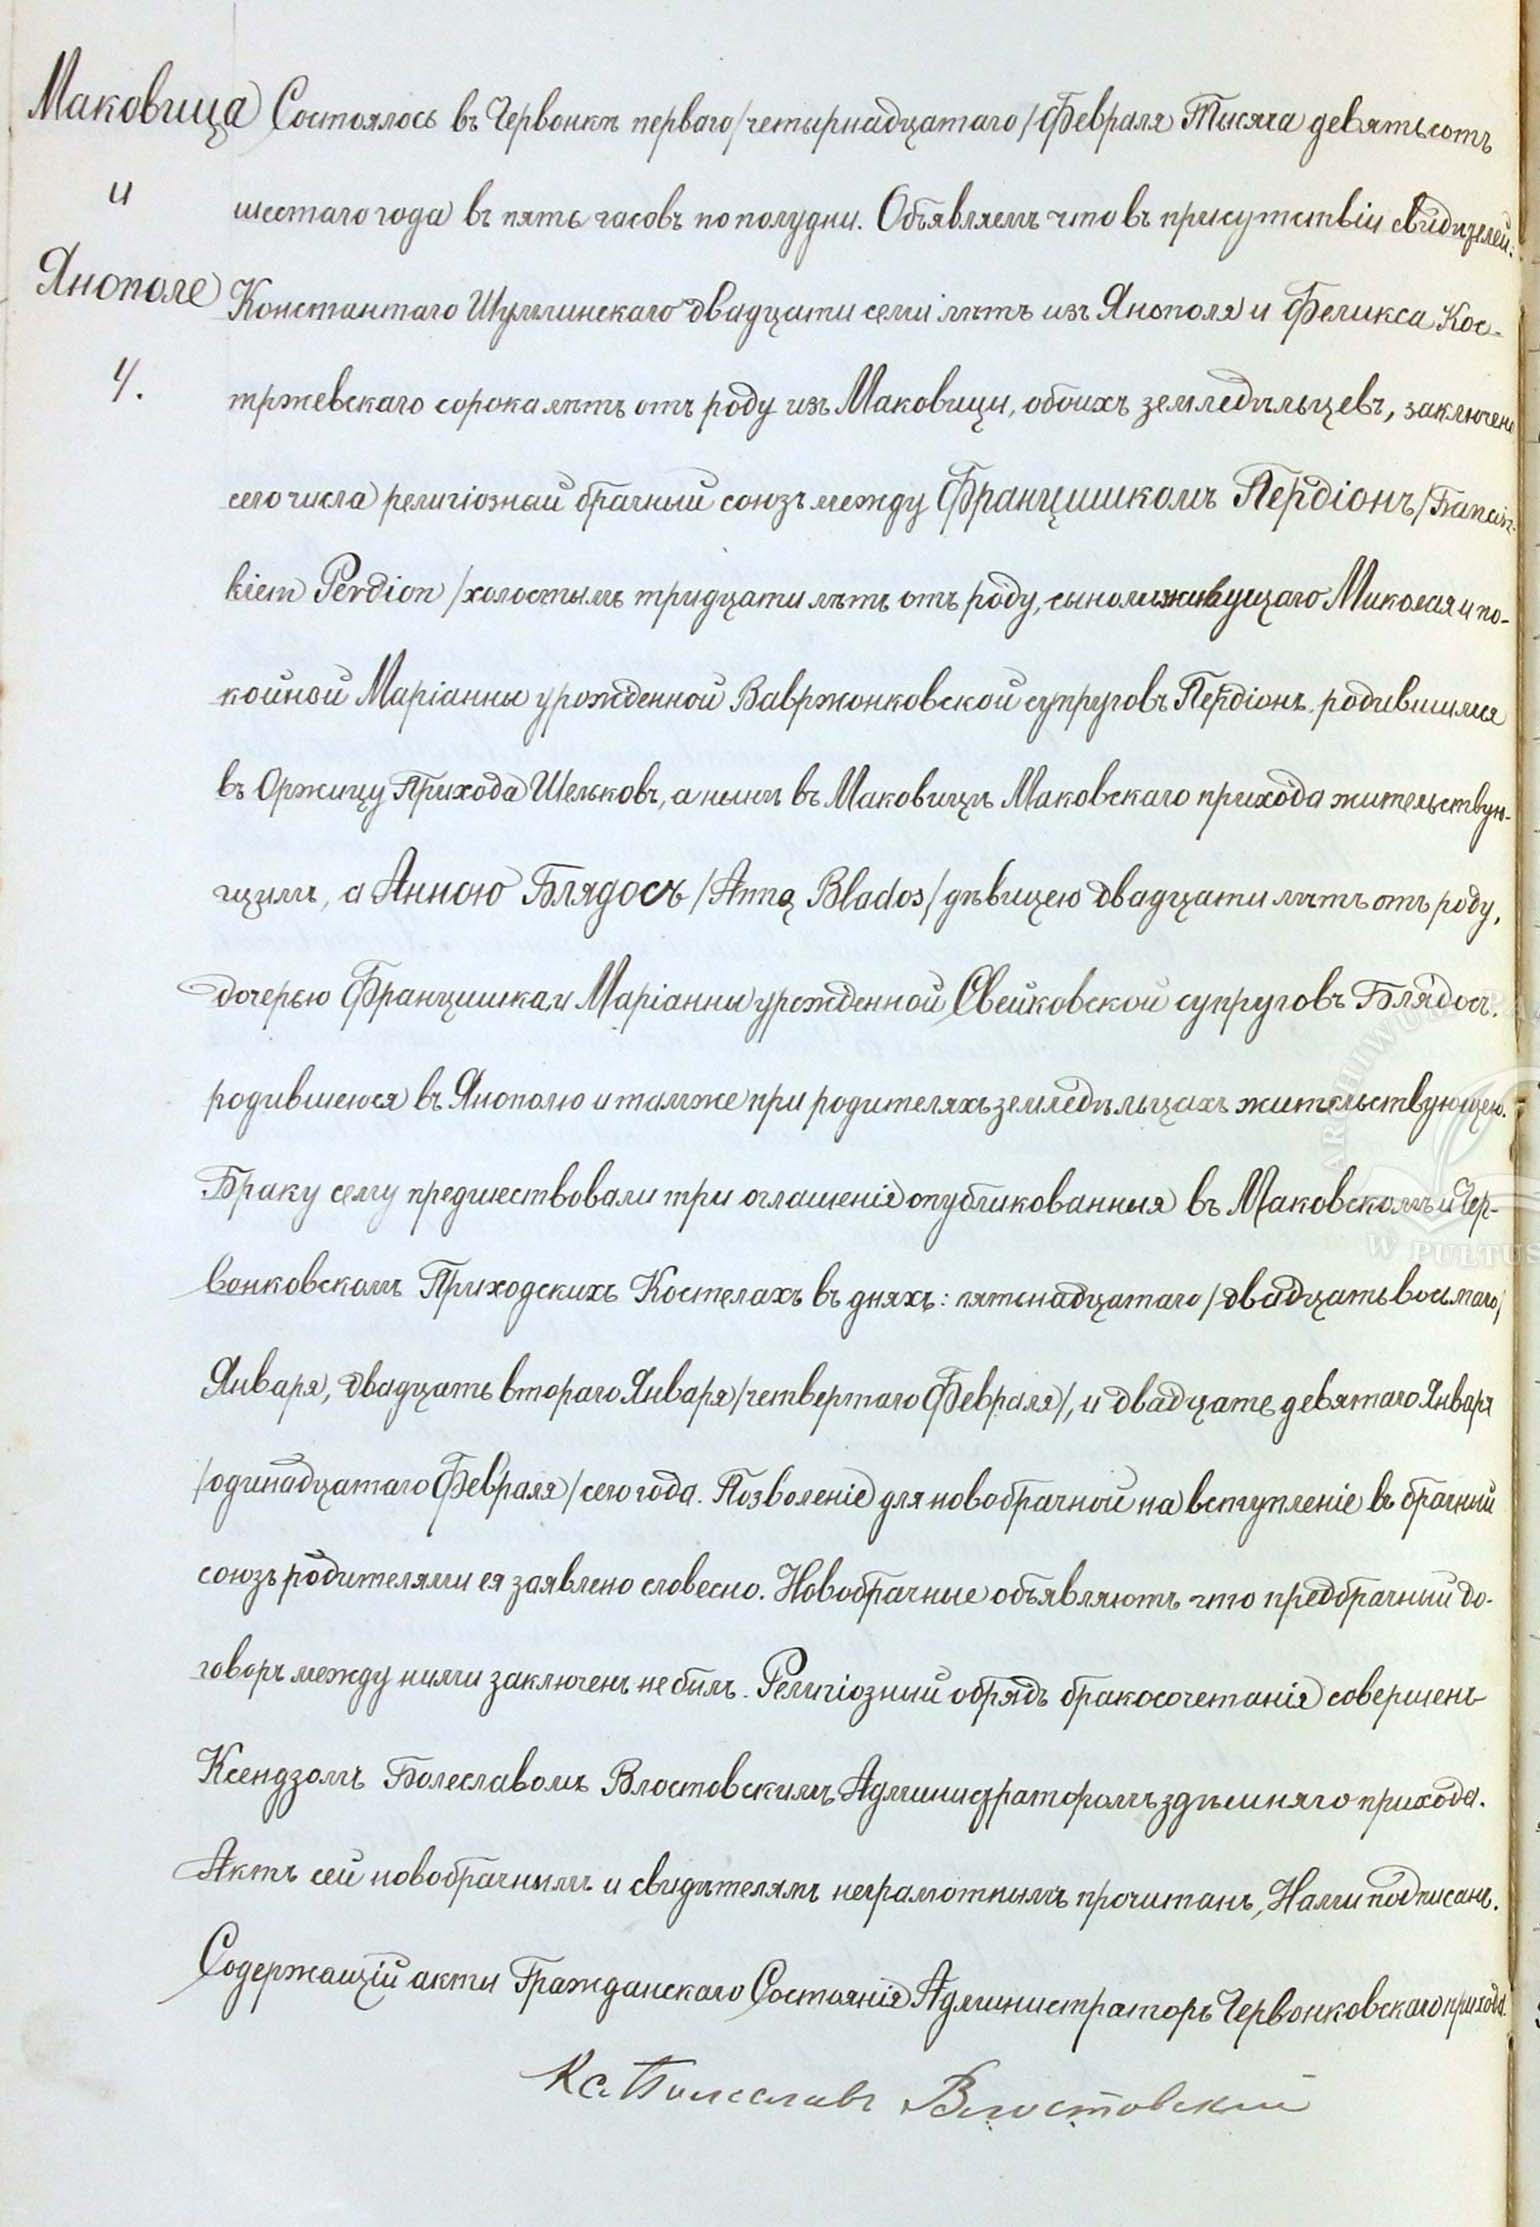 Маковица
и
Янополе
4.
Состоялось въ Червонкѣ перваго /четырнадцатаго/ Февраля Тысяча девятьсотъ
шестаго года въ пять часовъ пополудни. Объявляемъ что въ присутствіи свидѣтелей:
Константаго Шумлинскаго двадцати семи лѣтъ изъ Янополя и Феликса Кос-
тржевскаго сорока лѣтъ отъ роду изъ Маковицы, обоихъ земледѣльцевъ, заключенъ
сего числа религіозный брачный союзъ между Францишкомъ Пердіонъ /Francisz-
kiem Perdion/ холостымъ тридцати лѣтъ отъ роду, сыномъ живущаго Миколая и по-
койной Маріанны урожденной Вавржонковской супруговъ Пердіонъ. родившимся
въ Оржицу Прихода Шельковъ, а нынѣ въ Маковицѣ Маковскаго прихода жительствую-
щимъ, а Анною Блядосъ /Anną Blados/ дѣвицею двадцати лѣтъ отъ роду,
дочерью Францишка и Маріанны урожденной Свейковской супруговъ Блядосъ.
родившеюся въ Янополю и тамже при родителяхъ земледѣльцахъ жительствующею.
Браку сему предшествовали три оглашенія опубликованныя въ Маковскомъ и Чер-
вонковскомъ Приходскихъ Костелахъ въ дняхъ: пятьнадцатаго /двадцать восьмаго/
Января, двадцать втораго Января /четвертаго Февраля/, и двадцать девятаго Января
/одинадцатаго Февраля/ сего года. Позволеніе для новобрачной на вступленіе въ брачный
союзъ родителями ея заявлено словесно. Новобрачные объявляютъ что предбрачный до-
говоръ между ними заключенъ не былъ. Религіозный обрядъ бракосочетанія совершенъ
Ксендзомъ Болеславомъ Влостовскимъ Администраторомъ здѣшняго прихода.
Актъ сей новобрачнымъ и свидѣтелямъ неграмотнымъ прочитанъ, Нами подписанъ.
Содержащій акты Гражданскаго Состоянія Администраторъ Червонковскаго прихода.
Кс. Болеславъ Влостовскій
ARCHIWUM PA
W PULTUS